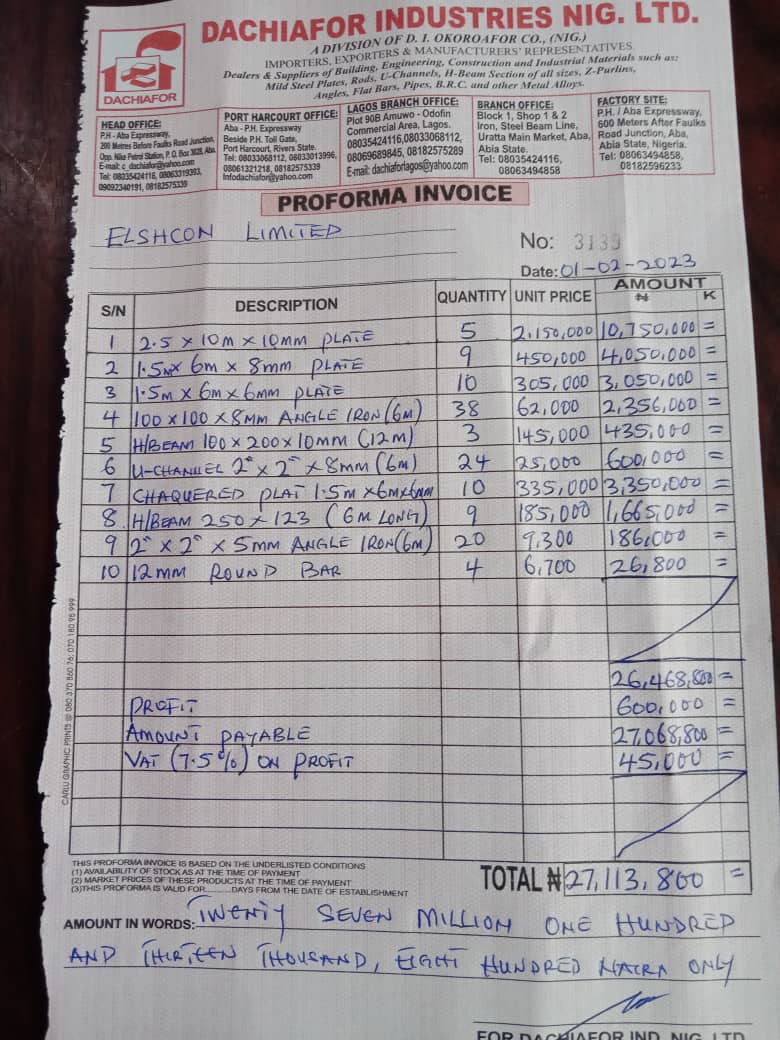 DACHIAFOR INDUSTRIES NIG. LTD.
A DIVISION OF D. I. OKOROAFOR CO., (NIG.)
IMPORTERS, EXPORTERS & MANUFACTURERS' REPRESENTATIVES.
Dealers & Suppliers of Building, Engineering, Construction and Industrial Materials such as:
Mild Steel Plates, Rods, U-Channels, H-Beam Section of all sizes, Z-Purlins,
Angles, Flat Bars, Pipes, B.R.C. and other Metal Alloys.
DACHIAFOR
HEAD OFFICE:
P.H - Aba Expressway,
200 Metres Before Faulks Road Junction,
Opp. Nike Petrol Station, P. O. Box 3028, Aba.
E-mail: c_dachiafor@yahoo.com
Tel: 08035424116, 08063319393,
09092340191, 08182575339
PORT HARCOURT OFFICE:
Aba - P.H. Expressway
Beside P.H. Toll Gate,
Port Harcourt, Rivers State.
Tel: 08033068112, 08033013996,
08061321218, 08182575339
Infodachiafor@yahoo.com
LAGOS BRANCH OFFICE:
Plot 90B Amuwo - Odofin
Commercial Area, Lagos.
08035424116,08033068112,
08069689845, 08182575289
E-mail: dachiaforlagos@yahoo.com
BRANCH OFFICE:
Block 1, Shop 1 & 2
Iron, Steel Beam Line,
Uratta Main Market, Aba,
Abia State.
Tel: 08035424116,
08063494858
FACTORY SITE:
P.H. / Aba Expressway,
600 Meters After Faulks
Road Junction, Aba,
Abia State, Nigeria.
Tel: 08063494858,
08182596233
PROFORMA INVOICE
ELSHCON LIMITED
No: 3139
Date: 01-02-2023
S/N DESCRIPTION QUANTITY UNIT PRICE AMOUNT ₦ K
1 2.5 x 10m x 10mm PLATE 5 2,150,000 10,750,000 =
2 1.5m x 6m x 8mm PLATE 9 450,000 4,050,000 =
3 1.5m x 6m x 6mm PLATE 10 305,000 3,050,000 =
4 100 x 100 x 8mm ANGLE IRON (6m) 38 62,000 2,356,000 =
5 H/BEAM 100 x 200 x 10mm (12m) 3 145,000 435,000 =
6 U-CHANNEL 2" x 2" x 8mm (6m) 24 25,000 600,000 =
7 CHAQUERED PLAT 1.5m x 6m x 6mm 10 335,000 3,350,000 =
8 H/BEAM 250 x 123 (6M LONG) 9 185,000 1,665,000 =
9 2" x 2" x 5mm ANGLE IRON (6m) 20 9,300 186,000 =
10 12mm ROUND BAR 4 6,700 26,800 =
26,468,800 =
PROFIT 600,000 =
AMOUNT PAYABLE 27,068,800 =
VAT (7.5%) ON PROFIT 45,000 =
CARLU GRAPHIC PRINTS @ 080 370 860 76, 070 180 95 999
THIS PROFORMA INVOICE IS BASED ON THE UNDERLISTED CONDITIONS
(1) AVAILABILITY OF STOCK AS AT THE TIME OF PAYMENT
(2) MARKET PRICES OF THESE PRODUCTS AT THE TIME OF PAYMENT
(3)THIS PROFORMA IS VALID FOR..........DAYS FROM THE DATE OF ESTABLISHMENT
TOTAL ₦ 27,113,800 =
AMOUNT IN WORDS: TWENTY SEVEN MILLION ONE HUNDRED
AND THIRTEEN THOUSAND, EIGHT HUNDRED NAIRA ONLY
FOR DACHIAFOR IND. NIG. LTD